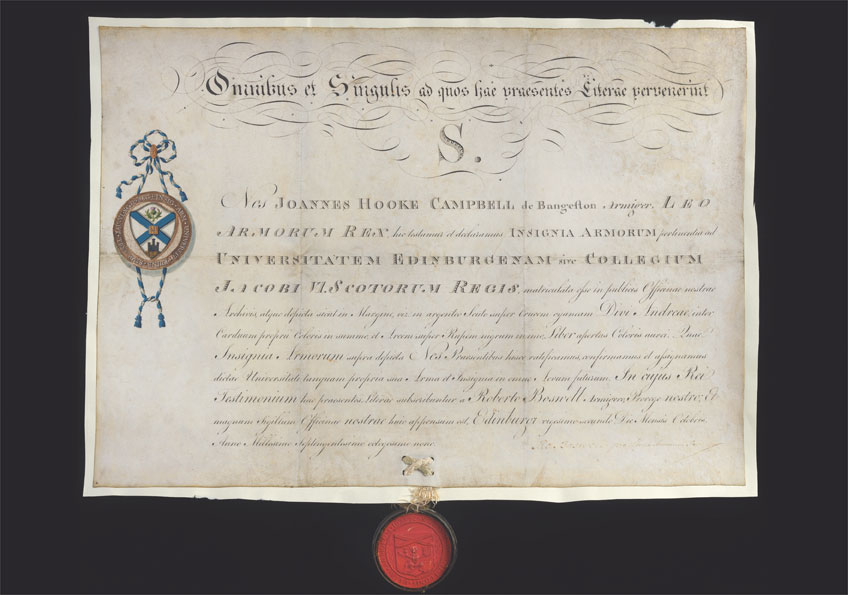 Omnibus et Singulis ad quos hae praesentes Literae pervenerint
S.
Nos JOANNES HOOKE CAMPBELL de Bangeston Armiger, LEO
ARMORUM REX hic testamur et declaramus INSIGNIA ARMORUM pertinentia ad
UNIVERSITATEM EDINBURGENAM sive COLLEGIUM
JACOBI VI. SCOTORUM REGIS, matriculata esse in publicis Officinae nostrae
Archivis, atque depicta sicut in Margine, viz. in argenteo Scuto super Crucem cyaneam Divi Andreae, inter
Carduum proprii Coloris in summo, et Arcem super Rupem nigram in imo, Liber apertus Coloris aurei. Quae
Insignia Armorum supra depicta Nos Praesentibus hisce ratificamus, confirmamus et assignamus
dictae Universitati tanquam propria sua Arma et Insignia in omne Aevum futurum. In cujus Rei
Testimonium hae praesentes Literae subscribuntur a Roberto Boswell Armigero, Provege nostro; Et
magnum Sigillum Officinae nostrae huic appensum est, Edinburgi vigesimo secundo Die Mensis Octobris
Anno Millesimo Septingentesimo octogesimo nono